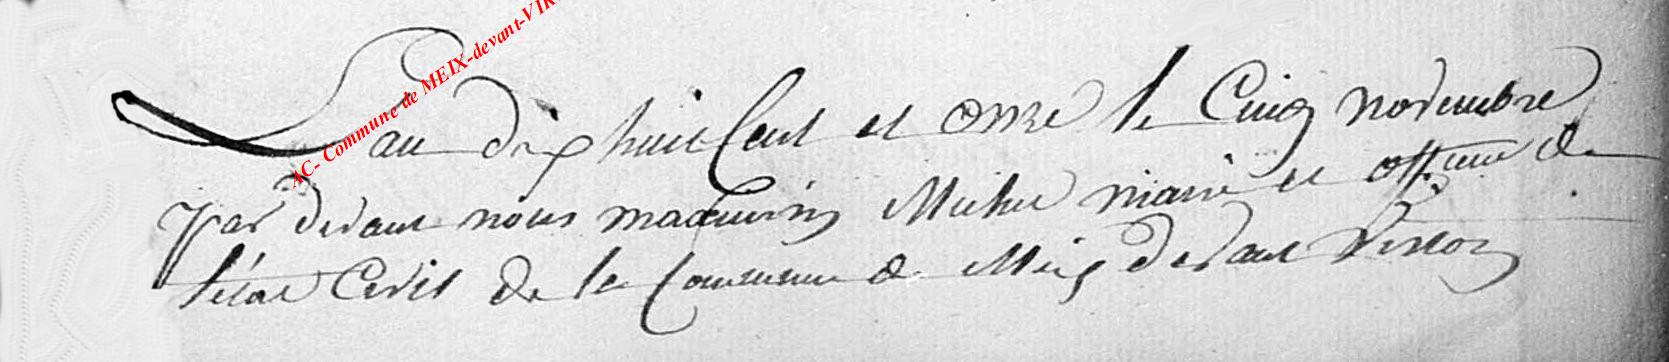 AC- Commune de MEIX-devant-VIR
L'an dix huit Cent et onze le Cinq novembre
par devant nous maximin Michel maire et officier de
l'état Civil de la Commune de Meix devant Virton